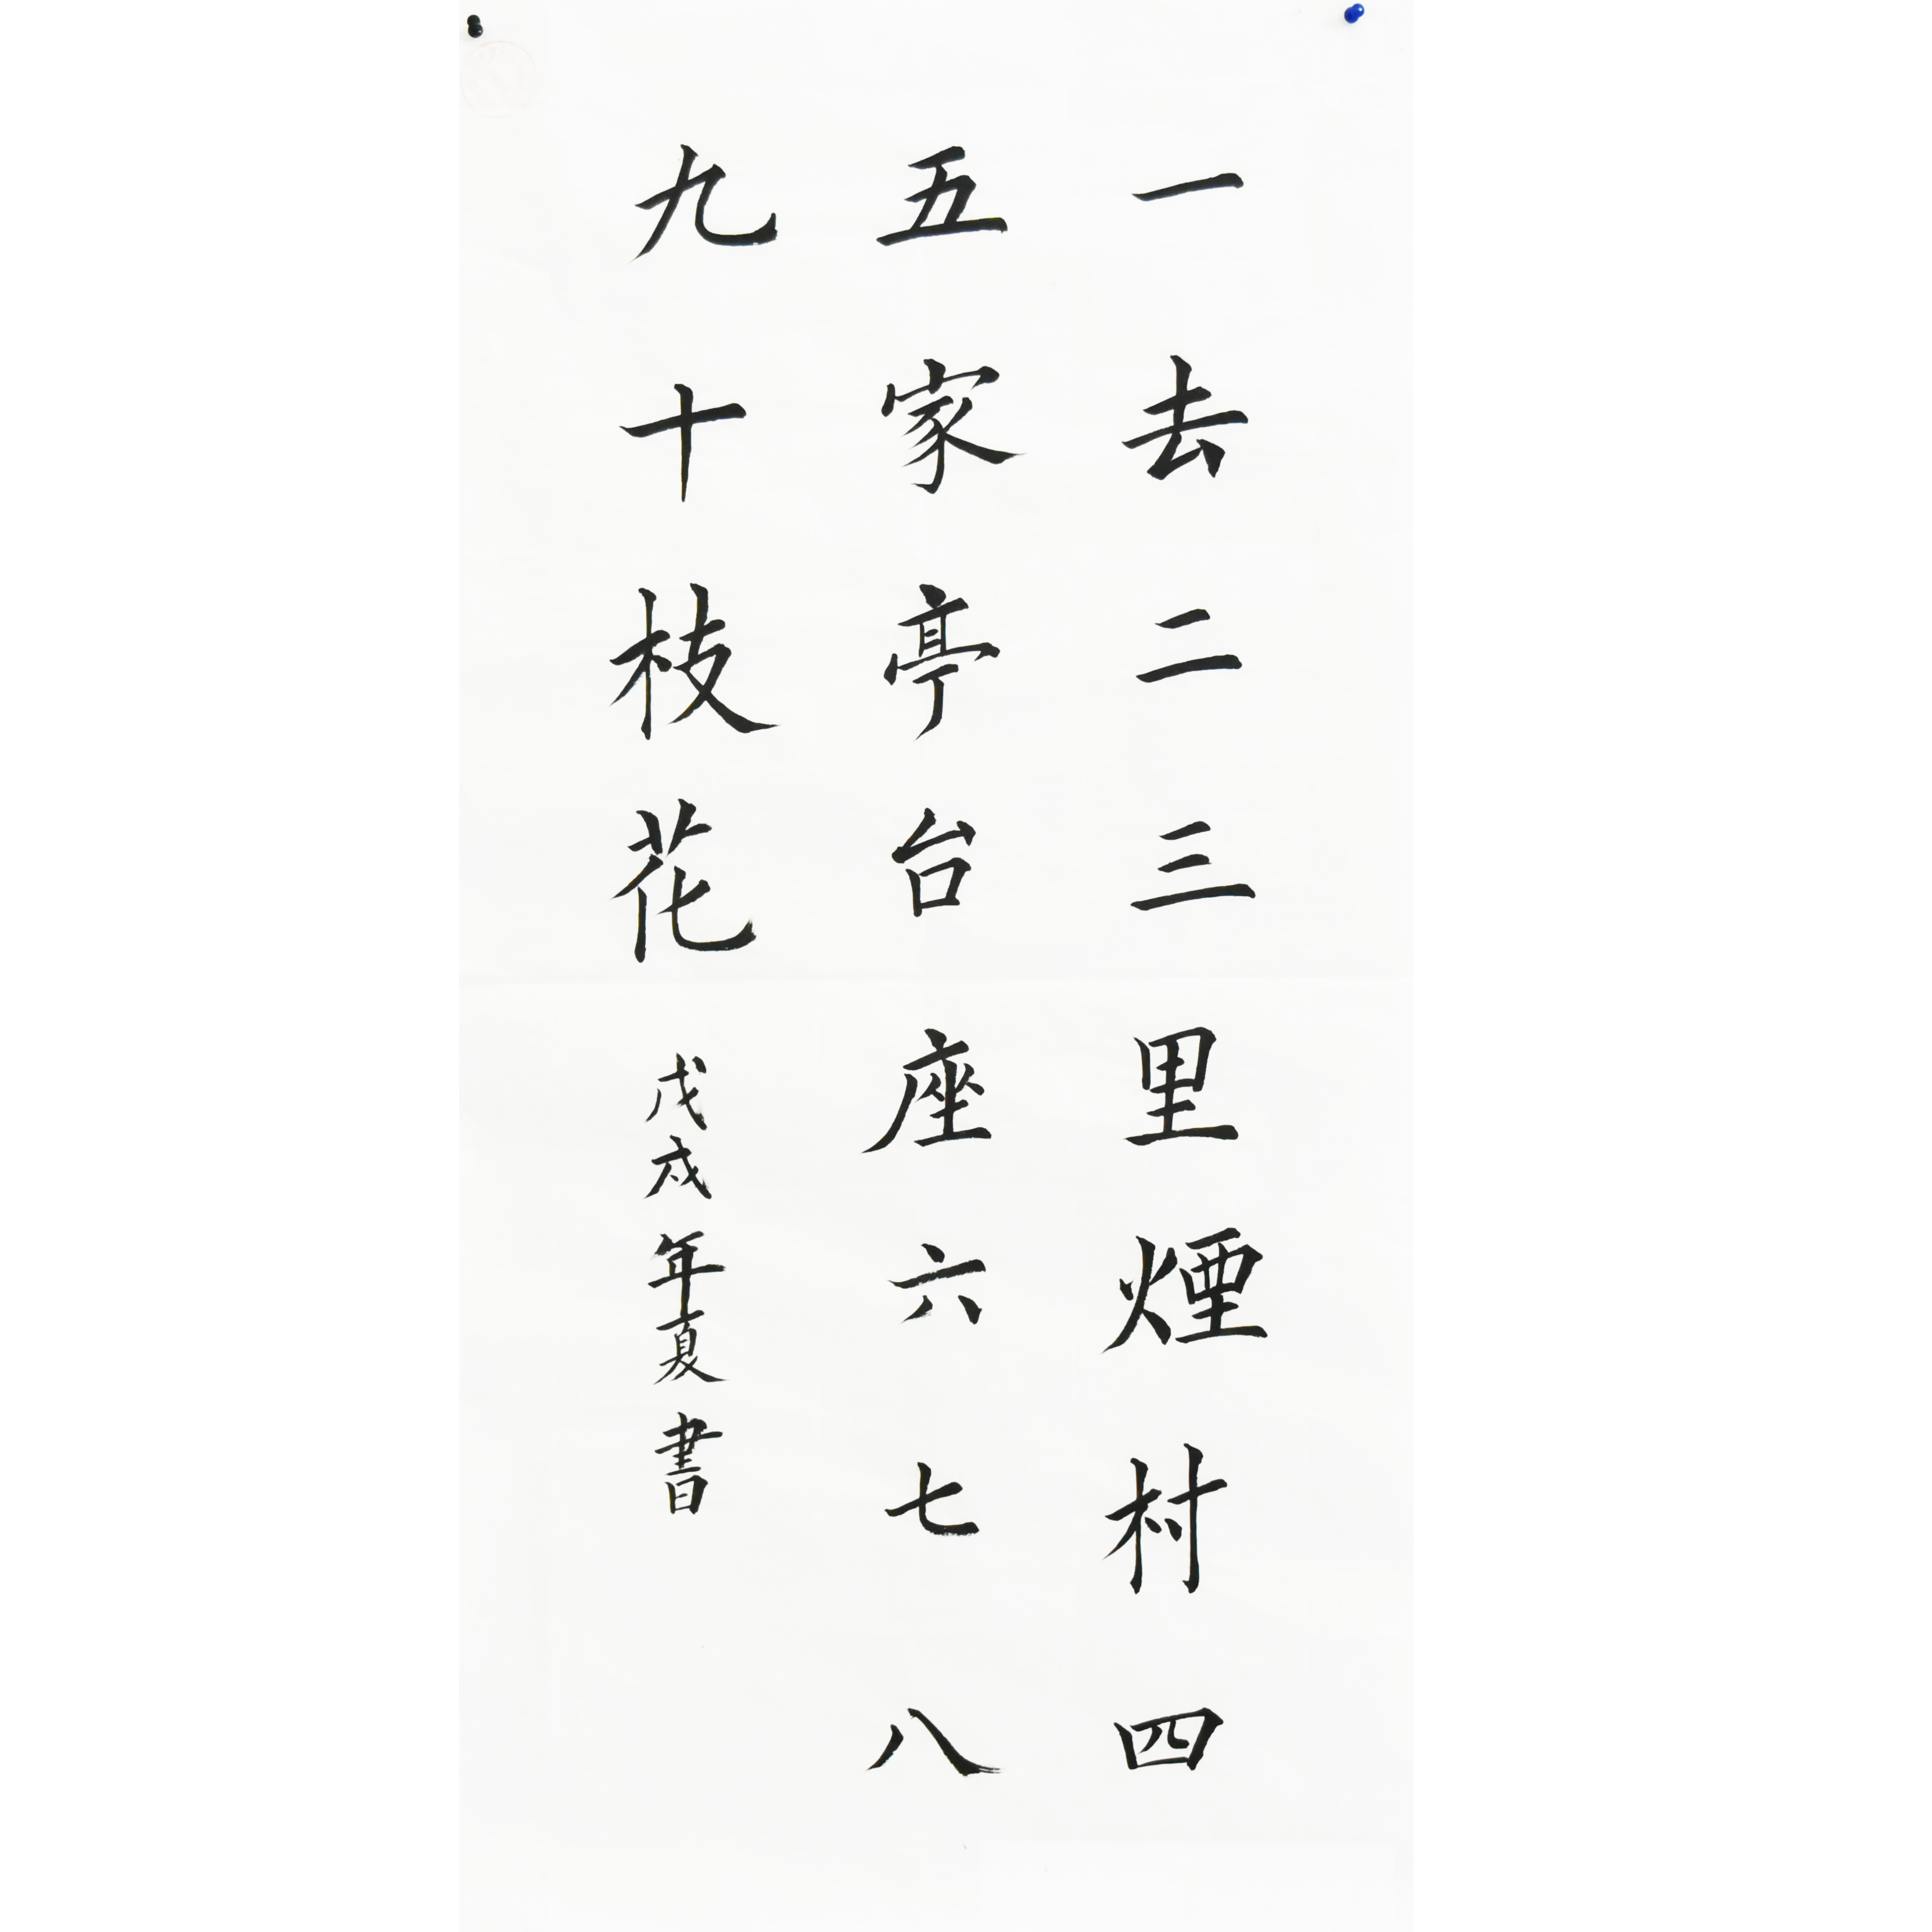 一去二三里煙村四
五家亭台座六七八
九十枝花
戊戌年夏書